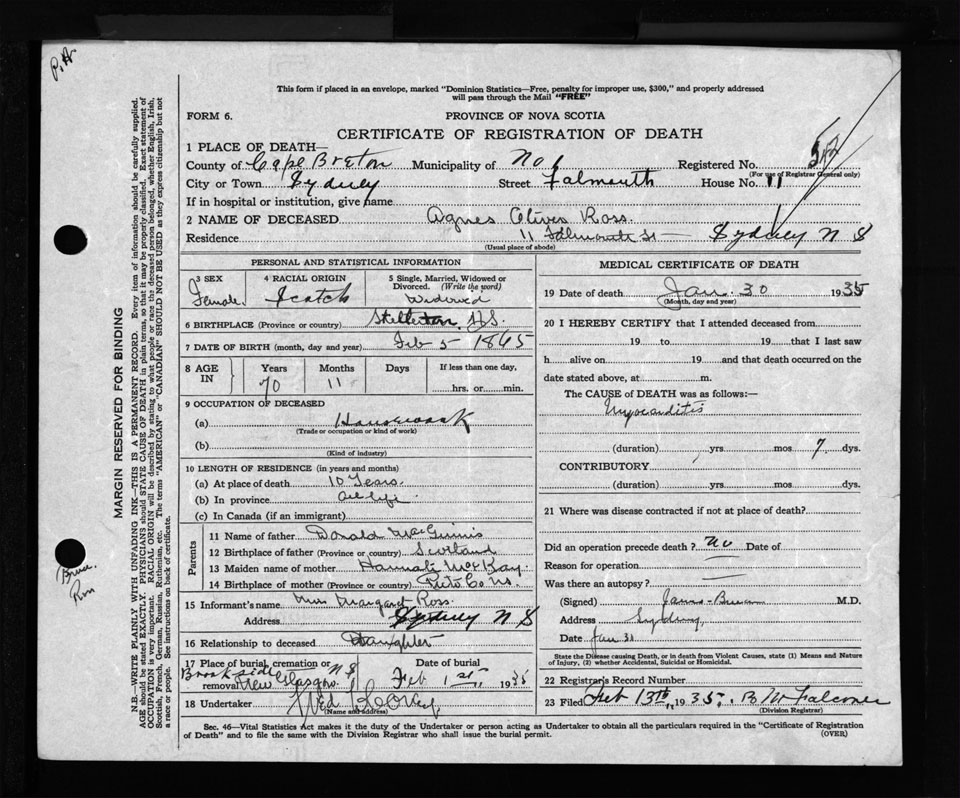 P.H.
This form if placed in an envelope, marked "Dominion Statistics—Free, penalty for improper use, $300," and properly addressed
will pass through the Mail "FREE"
FORM 6.
PROVINCE OF NOVA SCOTIA
CERTIFICATE OF REGISTRATION OF DEATH
1 PLACE OF DEATH—
County of Cape Breton Municipality of No 1 Registered No.
(For use of Registrar General only)
City or Town Sydney Street Falmouth House No. 11
If in hospital or institution, give name
2 NAME OF DECEASED Agnes Olives Ross.
Residence 11 Falmouth St — Sydney N S
(Usual place of abode)
PERSONAL AND STATISTICAL INFORMATION
3 SEX Female.
4 RACIAL ORIGIN Scotch
5 Single, Married, Widowed or
Divorced. (Write the word)
Widowed
6 BIRTHPLACE (Province or country) Stellerton, N.S.
7 DATE OF BIRTH (month, day and year) Feb 5 1865
8 AGE IN Years 70 Months 11 Days If less than one day,
hrs. or min.
9 OCCUPATION OF DECEASED
(a) Housework
(Trade or occupation or kind of work)
(b)
(Kind of industry)
10 LENGTH OF RESIDENCE (in years and months)
(a) At place of death 10 Years.
(b) In province all life
(c) In Canada (if an immigrant)
Parents
11 Name of father Donald MacGinnis
12 Birthplace of father (Province or country) Scotland
13 Maiden name of mother Hannah McKay.
14 Birthplace of mother (Province or country) Picto Co NS.
15 Informant's name Miss Margaret Ross.
Address Sydney N S
16 Relationship to deceased Daughter
17 Place of burial, cremation or
removal Brookside New Glasgow N S
Date of burial Feb 1st, 1935
18 Undertaker
(Name and address)
MEDICAL CERTIFICATE OF DEATH
19 Date of death Jan. 30 1935
(Month, day and year)
20 I HEREBY CERTIFY that I attended deceased from
19 to 19 that I last saw
h alive on 19 and that death occurred on the
date stated above, at m.
The CAUSE OF DEATH was as follows:—
Myocarditis
(duration) yrs. mos 7 dys.
CONTRIBUTORY
(duration) yrs. mos dys.
21 Where was disease contracted if not at place of death?
Did an operation precede death? No Date of
Reason for operation
Was there an autopsy?
(Signed) James Bruce M.D.
Address Sydney,
Date Jan 31
State the Disease causing Death, or in death from Violent Causes, state (1) Means and Nature
of Injury, (2) whether Accidental, Suicidal or Homicidal.
22 Registrar's Record Number
23 Filed Feb 13th, 1935. B W Falconer
(Division Registrar)
Sec. 46—Vital Statistics Act makes it the duty of the Undertaker or person acting as Undertaker to obtain all the particulars required in the "Certificate of Registration
of Death" and to file the same with the Division Registrar who shall issue the burial permit.
(OVER)
MARGIN RESERVED FOR BINDING
N.B.—WRITE PLAINLY WITH UNFADING INK—THIS IS A PERMANENT RECORD. Every item of information should be carefully supplied.
AGE should be stated EXACTLY. PHYSICIANS should STATE CAUSE OF DEATH in plain terms, so that it may be properly classified. Exact statement of
OCCUPATION is very important. RACIAL ORIGIN will be described by stating to what people or race the deceased person belonged, whether English, Irish,
Scottish, French, German, Russian, Ruthenian, etc. The terms "AMERICAN" or "CANADIAN" SHOULD NOT BE USED as they express citizenship but not
a race or people. See instructions on back of certificate.
Ross